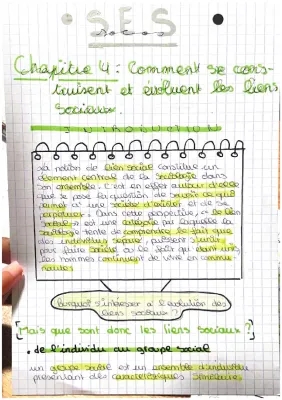 SES
Chapitre 4 : Comment se cons-
truisent et évoluent les liens
sociaux.
INTRODUCTION
La notion de lien social constitue un
élément centrale de la sociologie dans
son ensemble. C'est en effet autour d'elle
que se pose la question de savoir ce qui
permet à une société d'exister et de se
perpétuer. Dans cette perspective, "le lien
social" est une catégorie par laquelle la
sociologie tente de comprendre le fait que
des individus séparés, puissent s'unir
pour faire société ou le fait qu' étant unis
les hommes continuent de vivre en commu
nautés.
Pourquoi s'intéresser à l'évolution des
liens sociaux ?
[Mais que sont donc les liens sociaux ?]
• de l'individu au groupe social
un groupe social est un ensemble d'individu
présentant des caractéristiques similaires,